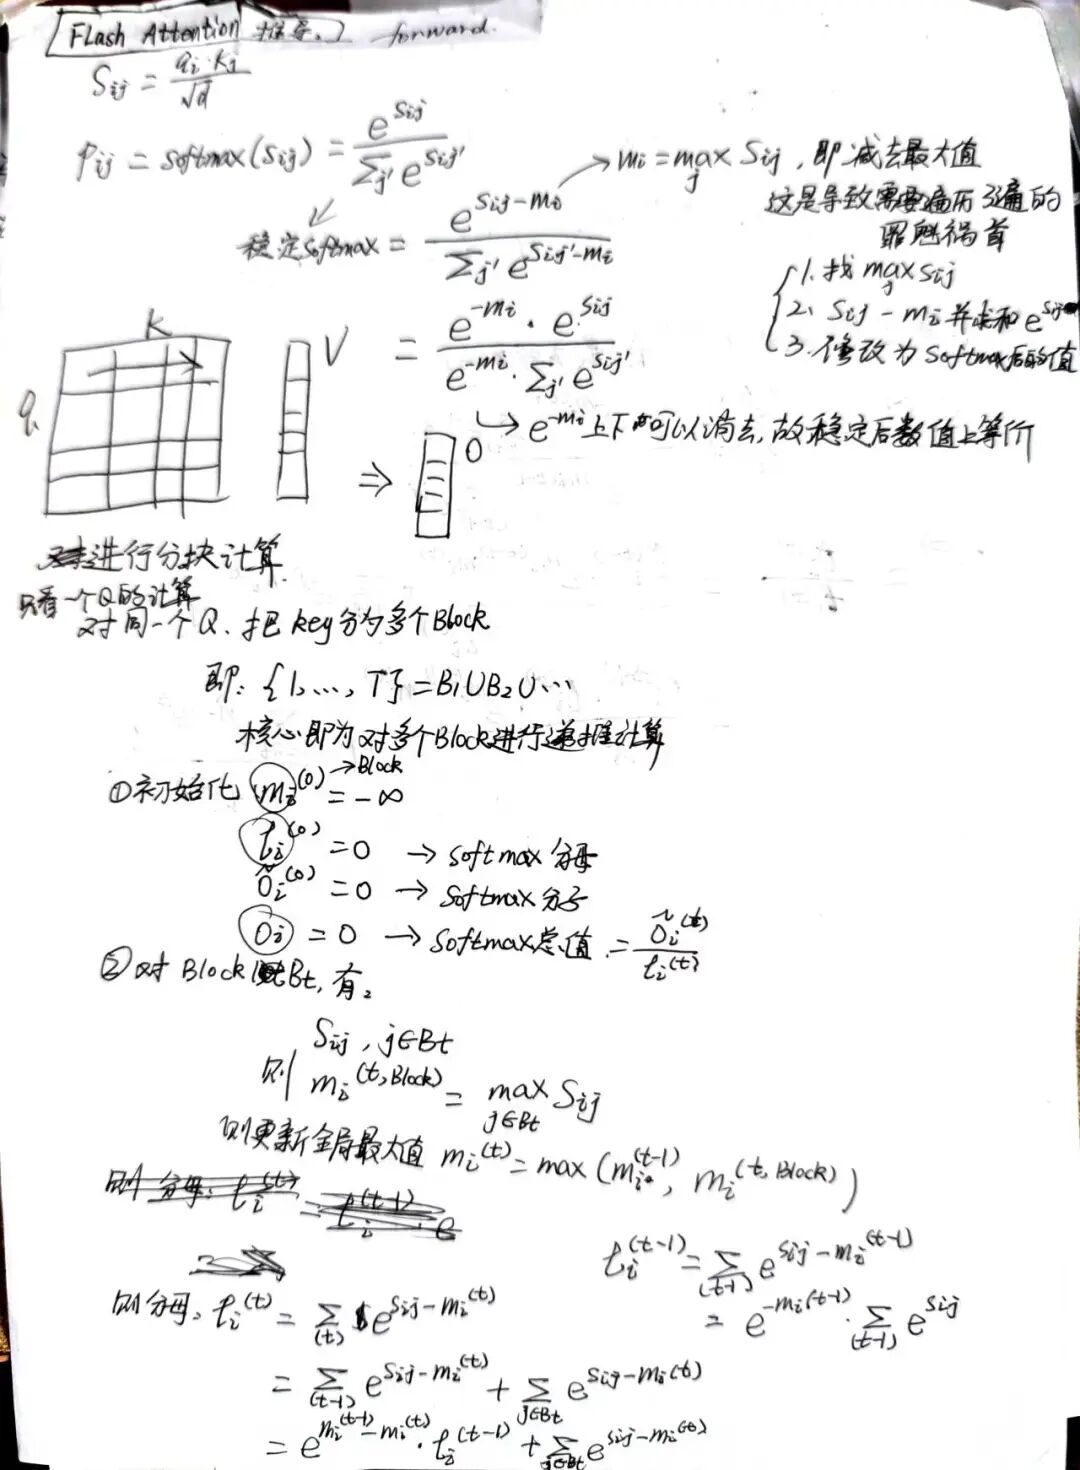 Flash Attention 推导. forward.
Sij = qi·kj / √d
Pij = softmax(Sij) = e^{Sij} / Σj' e^{Sij'}
→ mi = max_j Sij, 即减去最大值
这是导致需要遍历3遍的
罪魁祸首
稳定softmax = e^{Sij-mi} / Σj' e^{Sij'-mi}
1. 找 max_j Sij
2. Sij - mi 并求和 e^{Sij}
3. 修改为 softmax后的值
= e^{-mi} · e^{Sij} / e^{-mi} · Σj' e^{Sij'}
→ e^{-mi} 上下可以消去, 故稳定后数值上等价
K
q
V
⇒
O
进行分块计算.
只看一个Q的计算
对同一个Q. 把 key 分为多个Block
即: {1, ..., T} = B1∪B2∪...
核心即为对多个Block进行递推计算
①初始化 mi^(0) = -∞
→Block
ℓi^(0) = 0 → softmax 分母
õi^(0) = 0 → softmax 分子
oi = 0 → softmax总值. = õi^(t) / ℓi^(t)
②对 Block Bt, 有.
Sij, j∈Bt
则 mi^(t,Block) = max_{j∈Bt} Sij
则更新全局最大值 mi^(t) = max(mi^(t-1), mi^(t,Block))
则 分母: ℓi^(t) = ℓi^(t-1) · e
ℓi^(t-1) = Σ_(t-1) e^{Sij-mi^(t-1)}
= e^{-mi^(t-1)} · Σ_(t-1) e^{Sij}
则分母: ℓi^(t) = Σ_(t) e^{Sij-mi^(t)}
= Σ_(t-1) e^{Sij-mi^(t)} + Σ_{j∈Bt} e^{Sij-mi^(t)}
= e^{mi^(t-1)-mi^(t)} · ℓi^(t-1) + Σ_{j∈Bt} e^{Sij-mi^(t)}